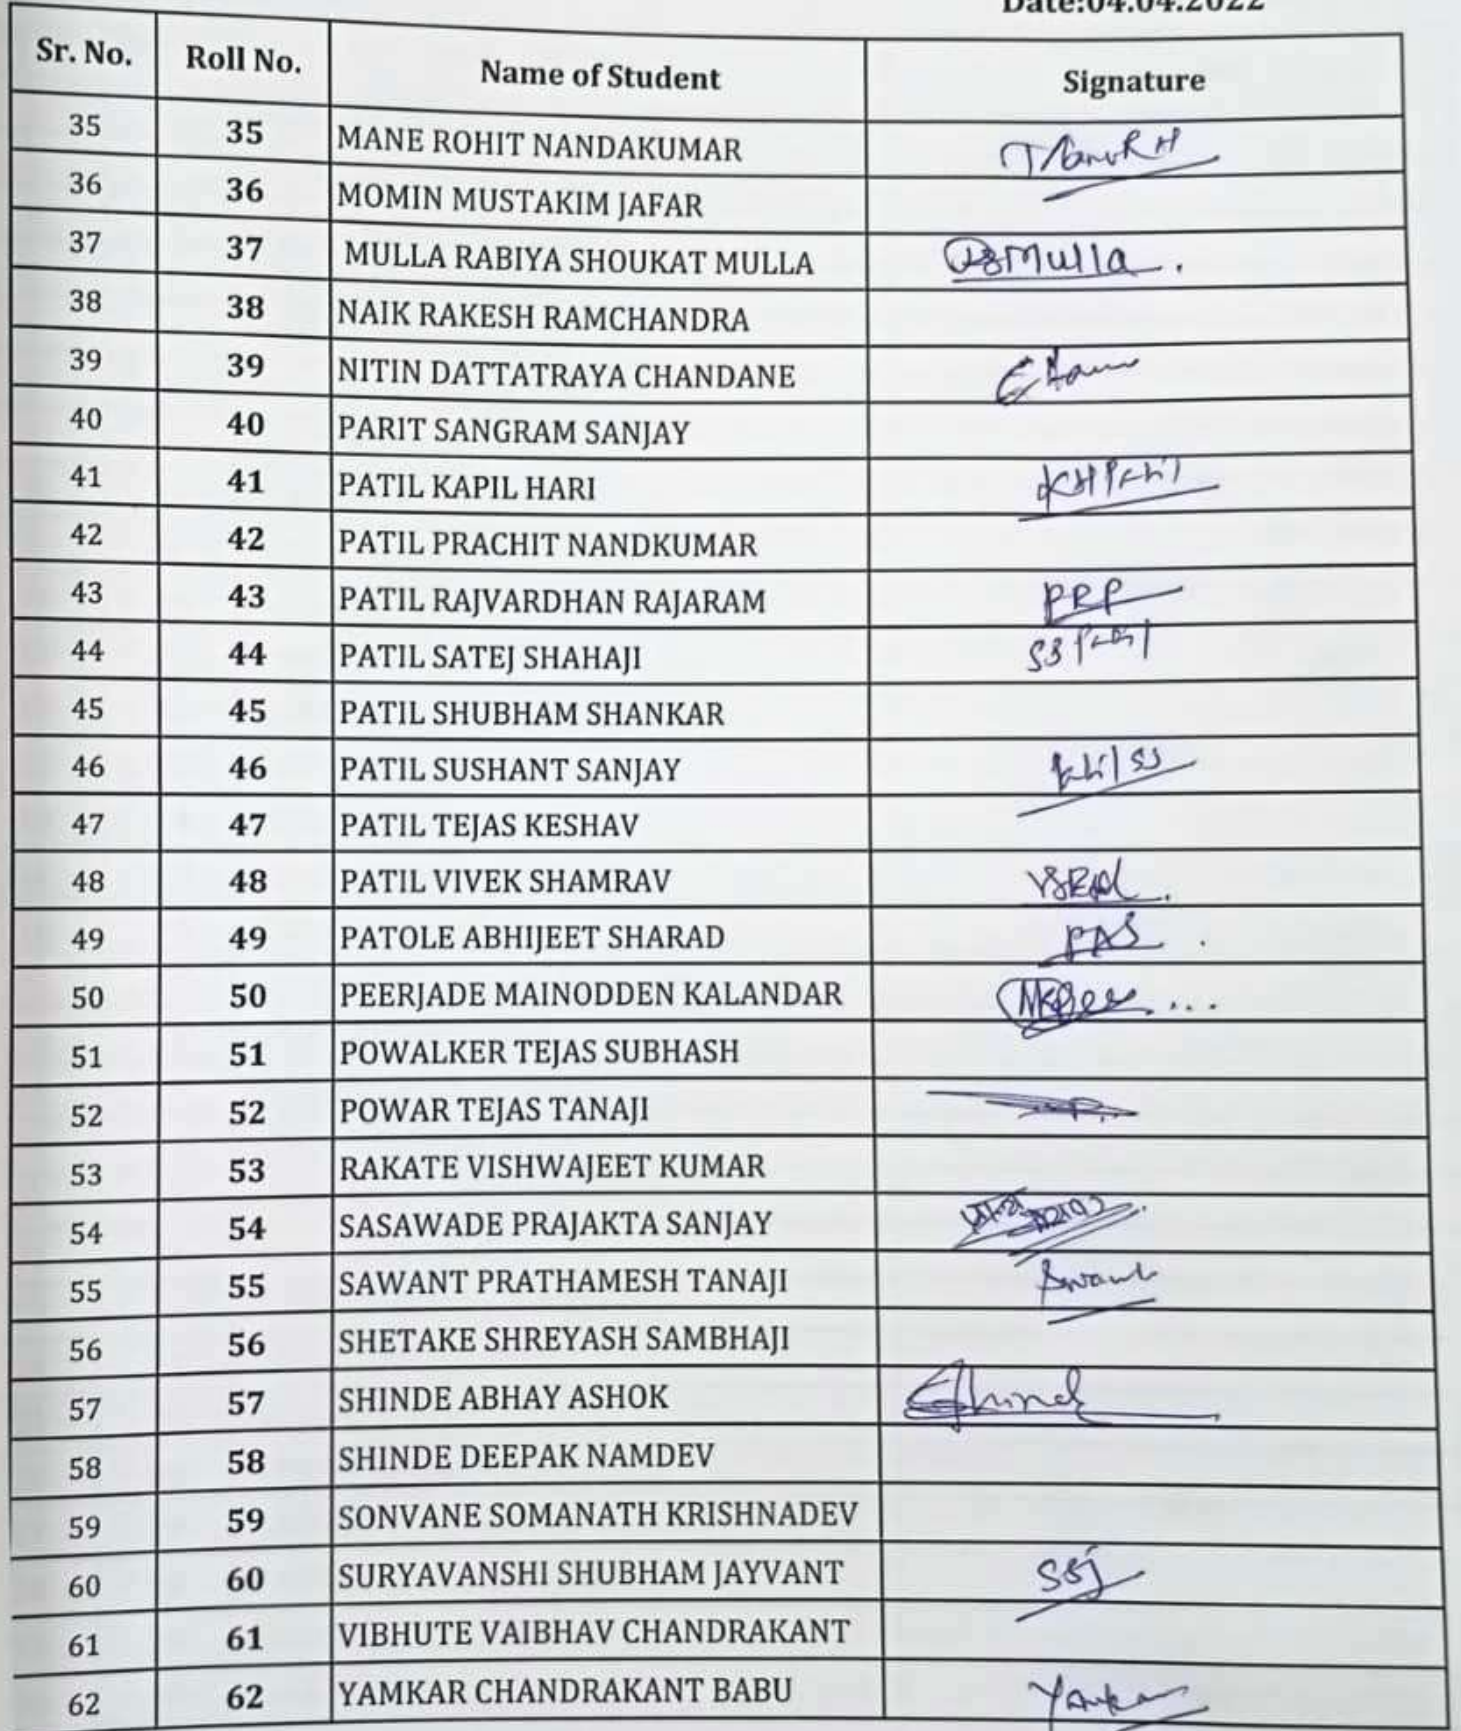 Date:04.04.2022
Sr. No. Roll No. Name of Student Signature
35 35 MANE ROHIT NANDAKUMAR
36 36 MOMIN MUSTAKIM JAFAR
37 37 MULLA RABIYA SHOUKAT MULLA RSMulla.
38 38 NAIK RAKESH RAMCHANDRA
39 39 NITIN DATTATRAYA CHANDANE
40 40 PARIT SANGRAM SANJAY
41 41 PATIL KAPIL HARI KHPatil
42 42 PATIL PRACHIT NANDKUMAR
43 43 PATIL RAJVARDHAN RAJARAM PRP
44 44 PATIL SATEJ SHAHAJI SSPatil
45 45 PATIL SHUBHAM SHANKAR
46 46 PATIL SUSHANT SANJAY Patil SS
47 47 PATIL TEJAS KESHAV
48 48 PATIL VIVEK SHAMRAV
49 49 PATOLE ABHIJEET SHARAD PAS
50 50 PEERJADE MAINODDEN KALANDAR
51 51 POWALKER TEJAS SUBHASH
52 52 POWAR TEJAS TANAJI
53 53 RAKATE VISHWAJEET KUMAR
54 54 SASAWADE PRAJAKTA SANJAY
55 55 SAWANT PRATHAMESH TANAJI
56 56 SHETAKE SHREYASH SAMBHAJI
57 57 SHINDE ABHAY ASHOK
58 58 SHINDE DEEPAK NAMDEV
59 59 SONVANE SOMANATH KRISHNADEV
60 60 SURYAVANSHI SHUBHAM JAYVANT SSJ
61 61 VIBHUTE VAIBHAV CHANDRAKANT
62 62 YAMKAR CHANDRAKANT BABU Yamkar